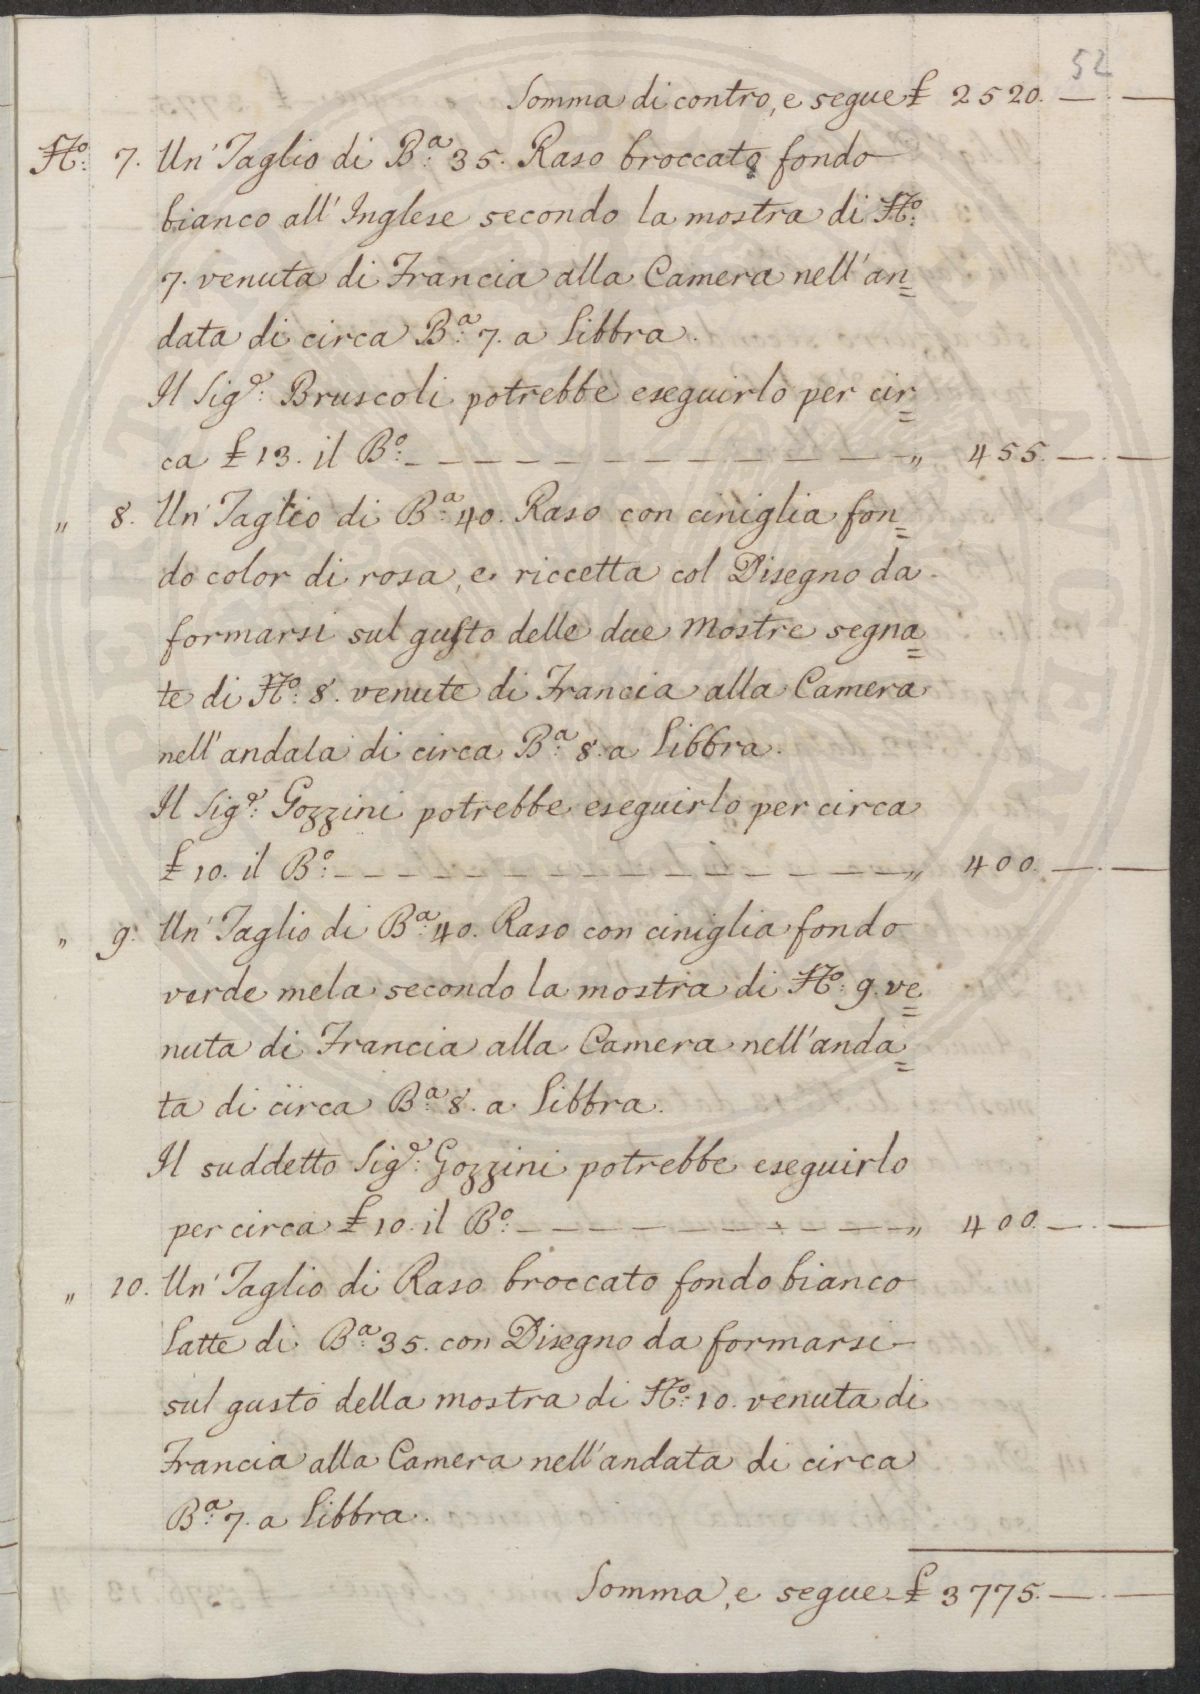 52
Somma di contro, e segue £ 2520. —. —
N.º 7. Un' Taglio di B.ª 35. Raso broccato fondo
bianco all' Inglese secondo la mostra di N.º
7. venuta di Francia alla Camera nell' an=
data di circa B.ª 7. a Libbra.
Il Sig.r Bruscoli potrebbe eseguirlo per cir=
ca £ 13. il B.º — — — — — — — — — — „ 455. —. —
„ 8. Un' Taglio di B.ª 40. Raso con ciniglia fon=
do color di rosa, e riccetta col Disegno da
formarsi sul gusto delle due Mostre segna=
te di N.º 8. venute di Francia alla Camera
nell' andata di circa B.ª 8. a Libbra.
Il Sig.r Gozzini potrebbe eseguirlo per circa
£ 10. il B.º — — — — — — — — — — — „ 400. —. —
„ 9. Un' Taglio di B.ª 40. Raso con ciniglia fondo
verde mela secondo la mostra di N.º 9. ve=
nuta di Francia alla Camera nell' anda=
ta di circa B.ª 8. a Libbra.
Il suddetto Sig.r Gozzini potrebbe eseguirlo
per circa £ 10. il B.º — — — — — — — „ 400. —. —
„ 10. Un' Taglio di Raso broccato fondo bianco
latte di B.ª 35. con Disegno da formarsi
sul gusto della mostra di N.º 10. venuta di
Francia alla Camera nell' andata di circa
B.ª 7. a Libbra.
Somma, e segue £ 3775. —. —